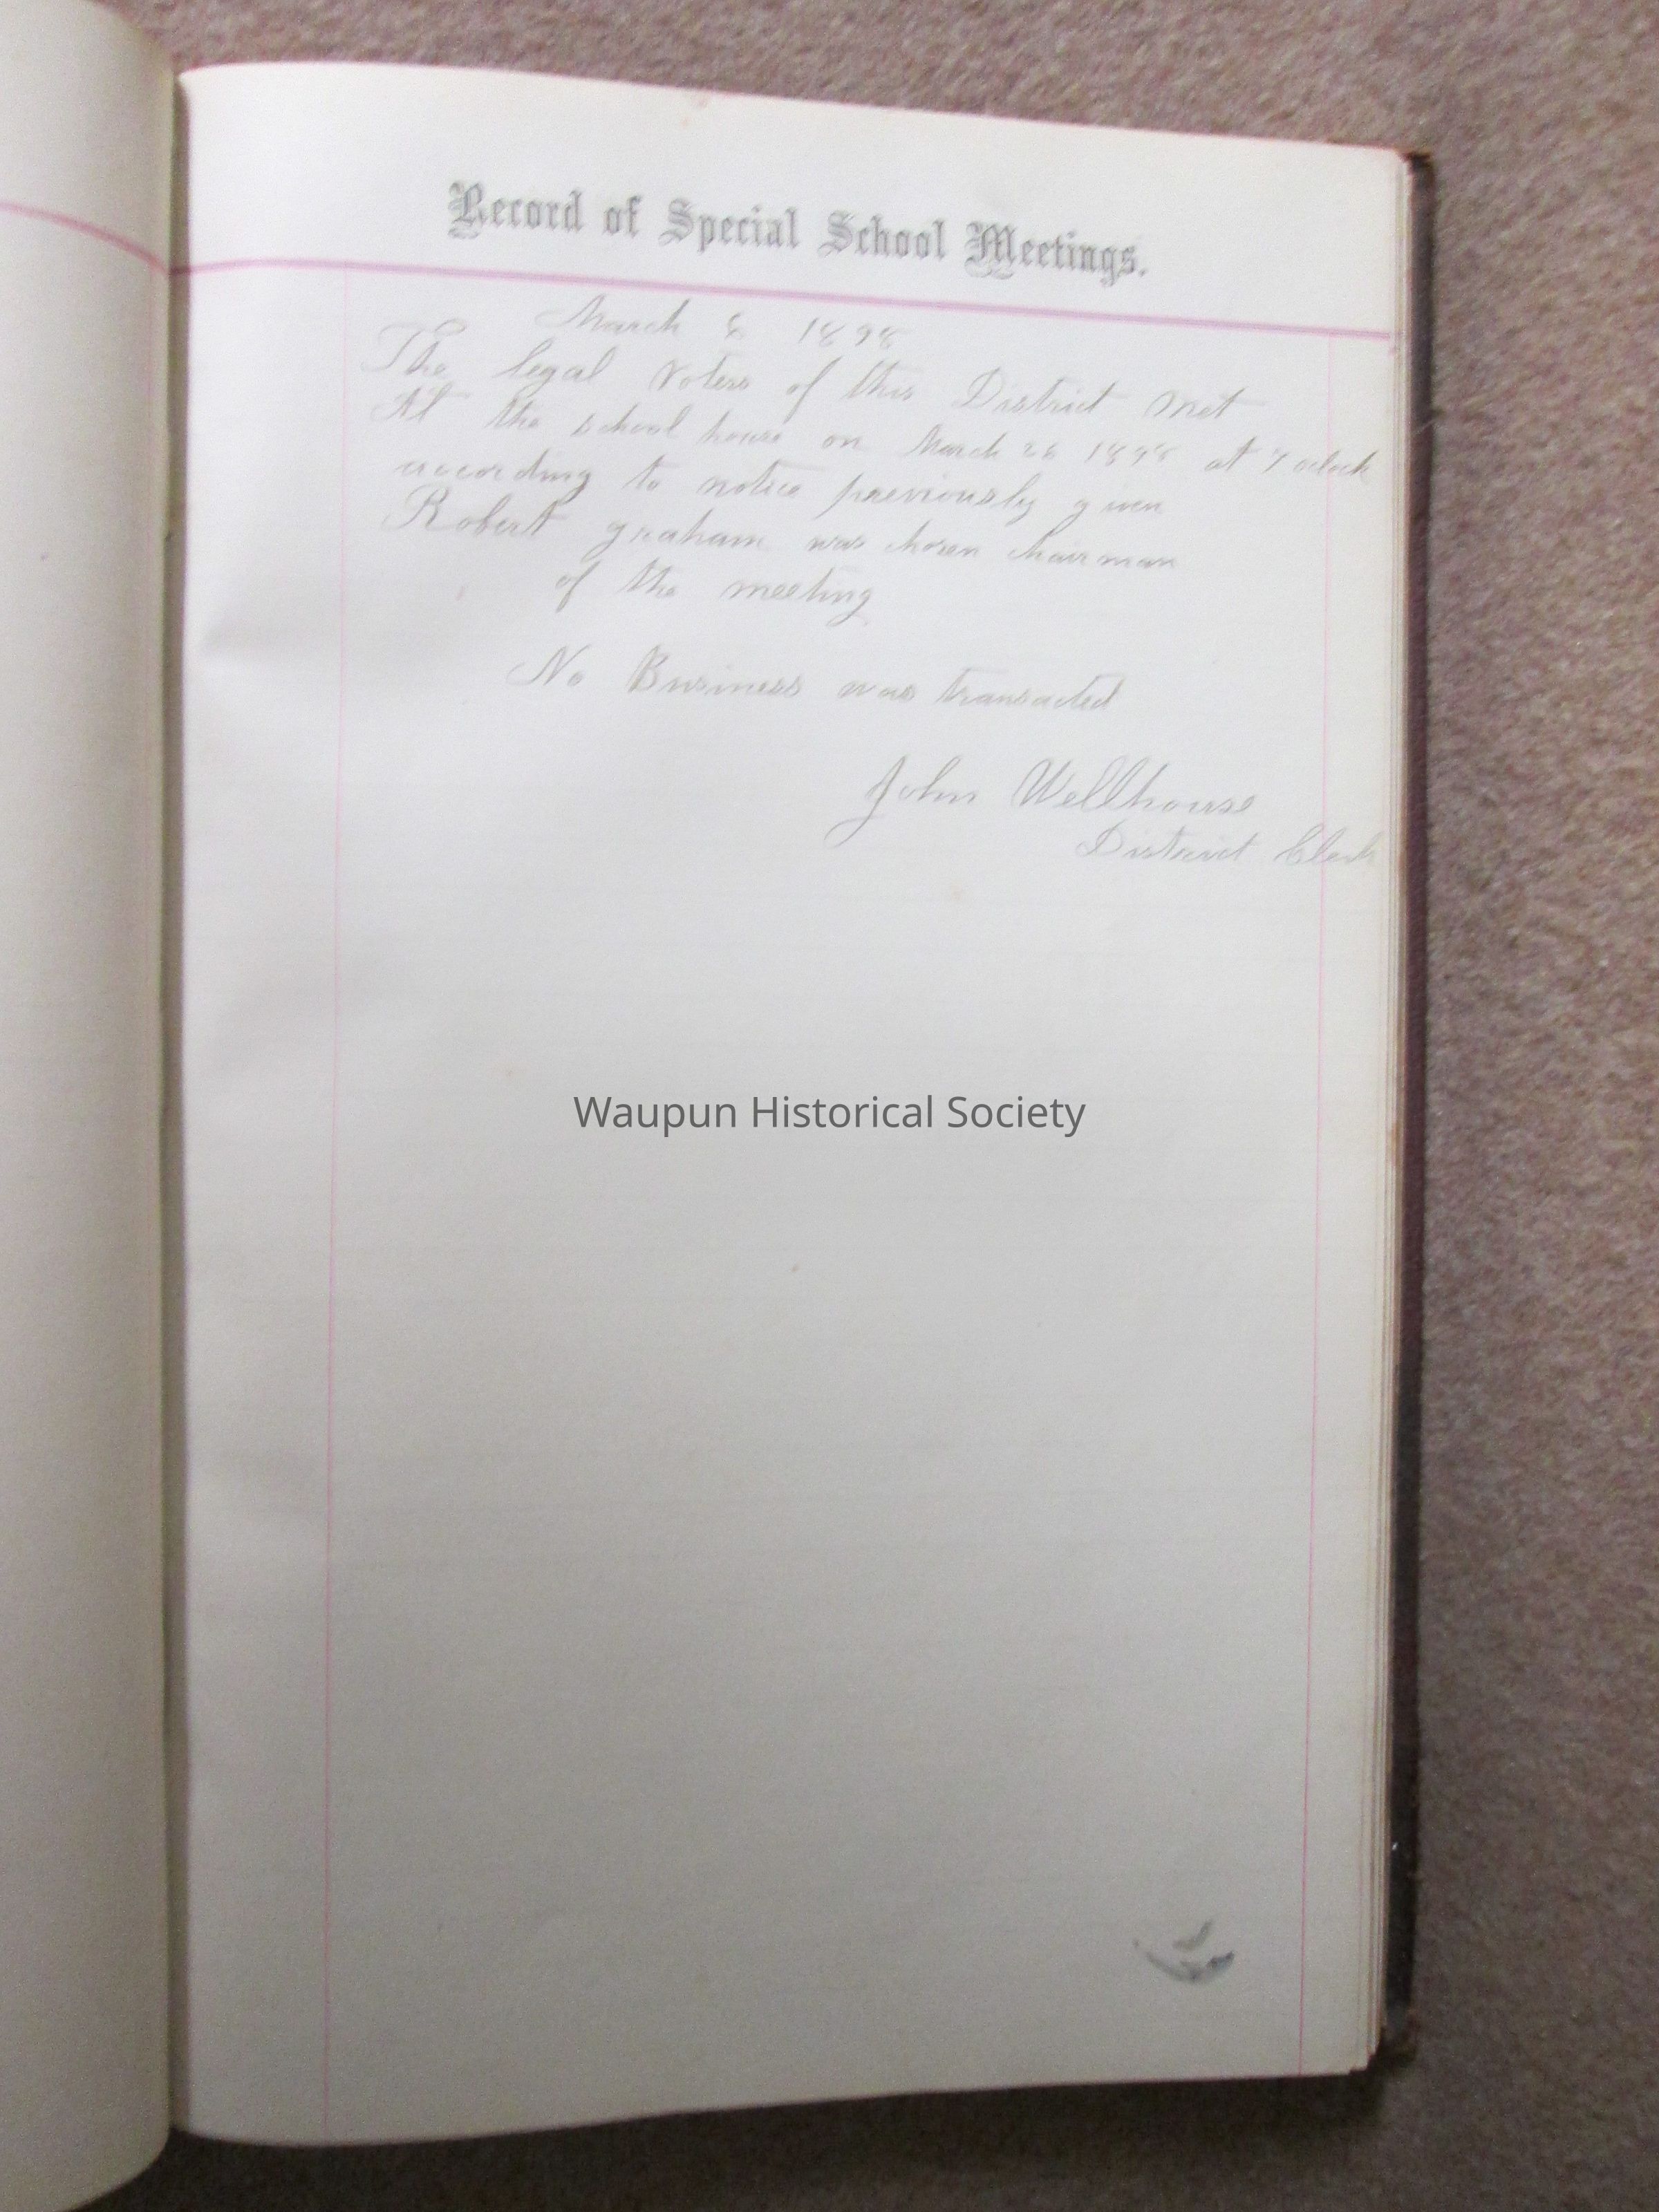 Record of Special School Meetings.
March 8 1898
The legal voters of this District met
At the school house on March 26 1898 at 7 oclock
according to notice previously given
Robert graham was chosen chairman
of the meeting
No Business was transacted
John Wellhouse
District Clerk
Waupun Historical Society